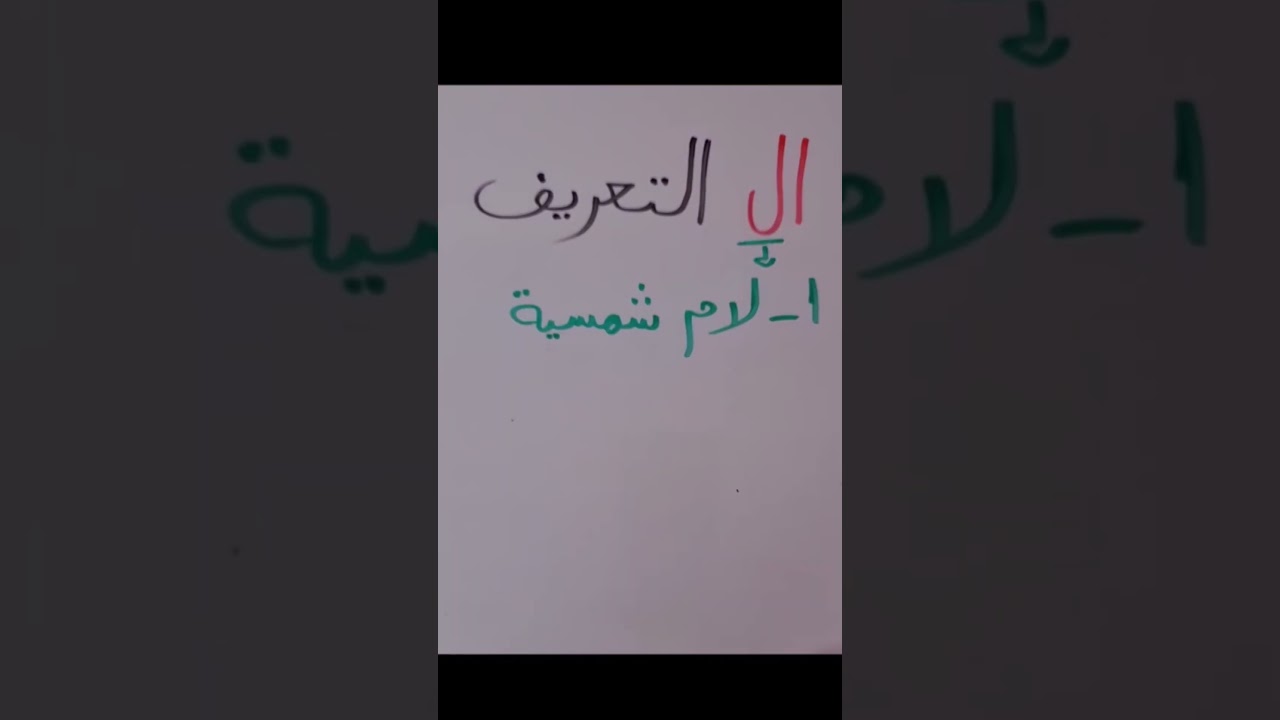 ال التعريف
١- لام شمسية